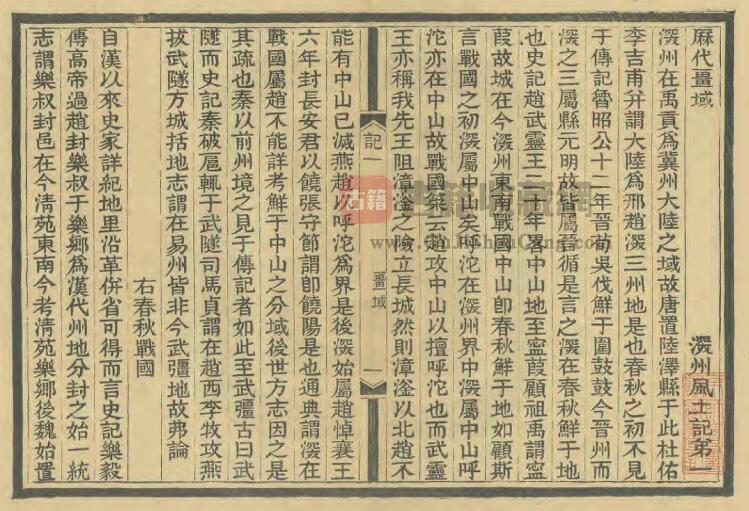 厤代畺域 深州風土記第一
深州在禹貢爲冀州大陸之域故唐置陸澤縣于此杜佑
李吉甫幷謂大陸爲邢趙深三州地是也春秋之初不見
于傳記魯昭公十二年晉荀吳伐鮮于圍鼓鼓今晉州而
深之三屬縣元明故皆屬晉循是言之深在春秋鮮于地
也史記趙武靈王二十年畧中山地至甯葭顧祖禹謂甯
葭故城在今深州東南戰國中山卽春秋鮮于地如顧斯
言戰國之初深屬中山矣呼沱在深州界中深屬中山呼
沱亦在中山故戰國策云趙攻中山以擅呼沱也而武靈
王亦稱我先王阻漳滏之險立長城然則漳滏以北趙不
記一 畺域 一
能有中山已滅燕趙以呼沱爲界是後深始屬趙悼襄王
六年封長安君以饒張守節謂卽饒陽是也通典謂深在
戰國屬趙不能詳考鮮于中山之分域後世方志因之是
其疏也秦以前州境之見于傳記者如此至武彊古曰武
隧而史記秦破扈輒于武隧司馬貞謂在趙西李牧攻燕
拔武隧方城括地志謂在易州皆非今武彊地故弗論
右春秋戰國
自漢以來史家詳紀地里沿革倂省可得而言史記樂毅
傳高帝過趙封樂叔于樂鄉爲漢代州地分封之始一統
志謂樂叔封邑在今淸苑東南今考淸苑樂鄉後魏始置
古籍